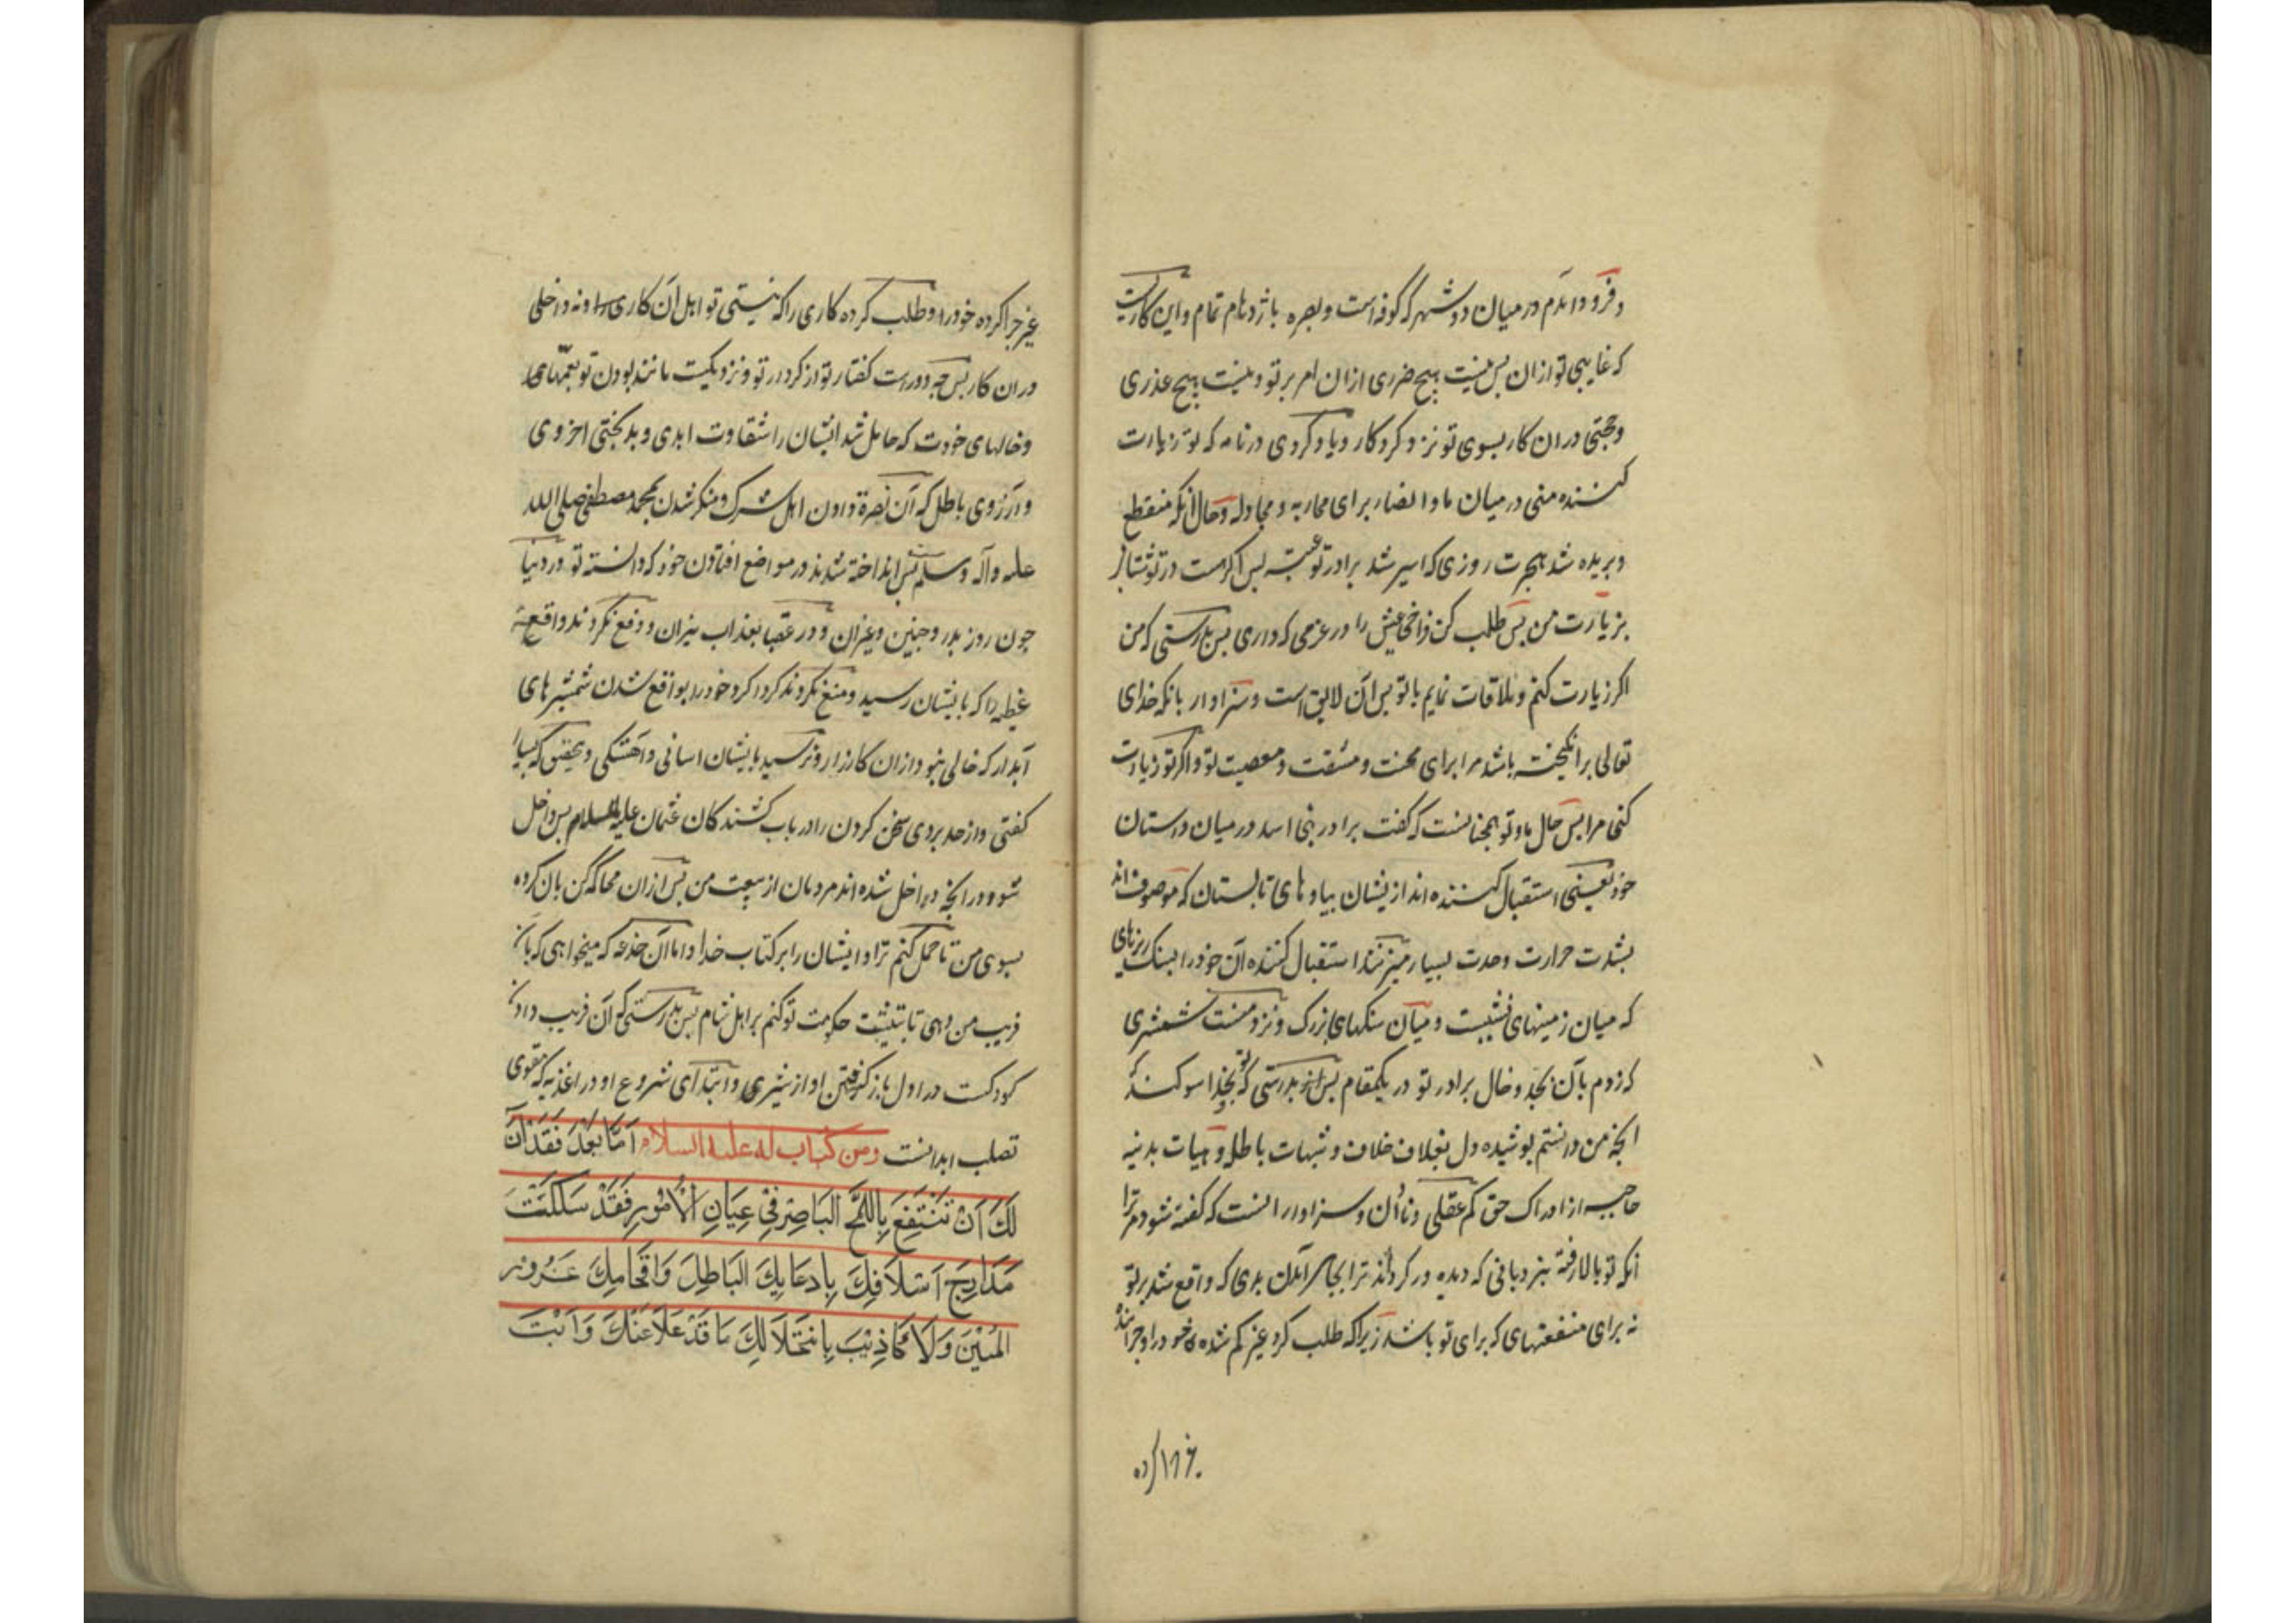 و فرود آمدم در میان دو شهر که کوفه است و بصره با ژدهام تمام و این کاریست
که غایبی تو ازان پس نیست هیچ ضرری ازان امر بر تو و نیست هیچ عذری
و حجتی دران کار بسوی تو نزد کردکار و یاد کردی در نامه که تو زیارت
کننده منی در میان ما و انصار برای محاربه و مجادله و حال آنکه منقطع
و بریده شد هجرت روزی که اسیر شد برادر تو عتبه پس اکر هست در تو شتاب
بزیارت من پس طلب کن فراخی عیش را در عزمی که داری پس بدرستی که من
اکر زیارت کنم و ملاقات نمایم با تو پس آن لایق است و سزاوار بانکه خدای
تعالی برانکیخته باشد مرا برای محنت و مشقت و معصیت تو و اکر تو زیارت
کنی مرا پس حال ما و تو همچنانست که کفت برادر بنی اسد در میان داستان
خود یعنی استقبال کننده اند ازیشان بیادهای تابستان که موصوف اند
بشدت حرارت وحدت بسیار میزنند استقبال کننده آن خود را بسنک ریزهای
که میان زمینهای نشیبست و میان سنکهای بزرک و نزد منست شمشیری
که زدم بآن بجد و خال برادر تو در یکمقام پس بدرستی که تو بخدا سوکند
انچه من دانستم پوشیده دل بغلاف خلاف و شبهات باطل و هیات بدنیه
حاجبه از ادراک حق کم عقلی و نادان و سزاوار انست که کفته شود مر ترا
انکه تو بالا رفته بنردبانی که دیده ور کرداند ترا بجای برآمدن بدی که واقع شد بر تو
نه برای منفعتهای که برای تو باشد زیراکه طلب کرد غیر کم شده خود را و چرانید
غیر چرا کرده خود را و طلب کرده کاری را که نیستی تو اهل آن کاری و نه داخلی
دران کار پس چه دورست کفتار تو از کردار تو و نزدیکیست مانند بودن تو بعمهای
و خالهای خودت که حامل شد ایشان را شقاوت ابدی و بدبختی اخروی
و آرزوی باطل که آن نصرة دادن اهل شرک و منکر شدن بمحمد مصطفی صلی الله
علیه و آله و سلم پس انداخته شدند در مواضع افتادن خود که دانسته تو در دنیا
چون روز بدر و حنین و غیران و در عقبا بعذاب نیران و دفع نکردند واقعهٔ
عظیم را که بایشان رسید و منع نکردند کرداکرد خود را بواقع شدن شمشیرهای
آبدار که خالی نبود ازان کارزار و نرسید بایشان اسانی و اهستکی و بتحقیق که بسیار
کفتی و از حد بردی سخن کردن را در باب کشندکان عثمان علیه السلام پس داخل
شو در انچه داخل شده اند مردمان از بیعت من پس ازان محاکه کن بان کرده
بسوی من تا حمل کنم ترا و ایشان را بر کتاب خدا و اما آن خدعه که میخواهی که بان
فریب من دهی تا تثبیت حکومت تو کنم بر اهل شام پس بدرستی که آن فریب دادن
کودکست در اول باز کرفتن او از شیر و ابتدای شروع او در اغذیه که مقوی
تصلب ابدانست ومن کتاب له علیه السلام اَمَّا بَعْدَ فَقَدْ آنَ
لَكَ اَنْ تَنْتَفِعَ بِاللَّمْحِ البَاصِرِ فِیْ عِیَانِ الْاُمُوْرِ فَقَدْ سَلَكْتَ
مَدَارِجَ اَسْلَافِكَ بِادِعَایِكَ البَاطِلَ وَاقْحَامِكَ غُرُوْرِ
المَیْنِ وَلَا کَاذِیْبَ بِانْتِحَلَالِكَ مَا قَدْ عَلَا عَنْكَ وَابْتَ